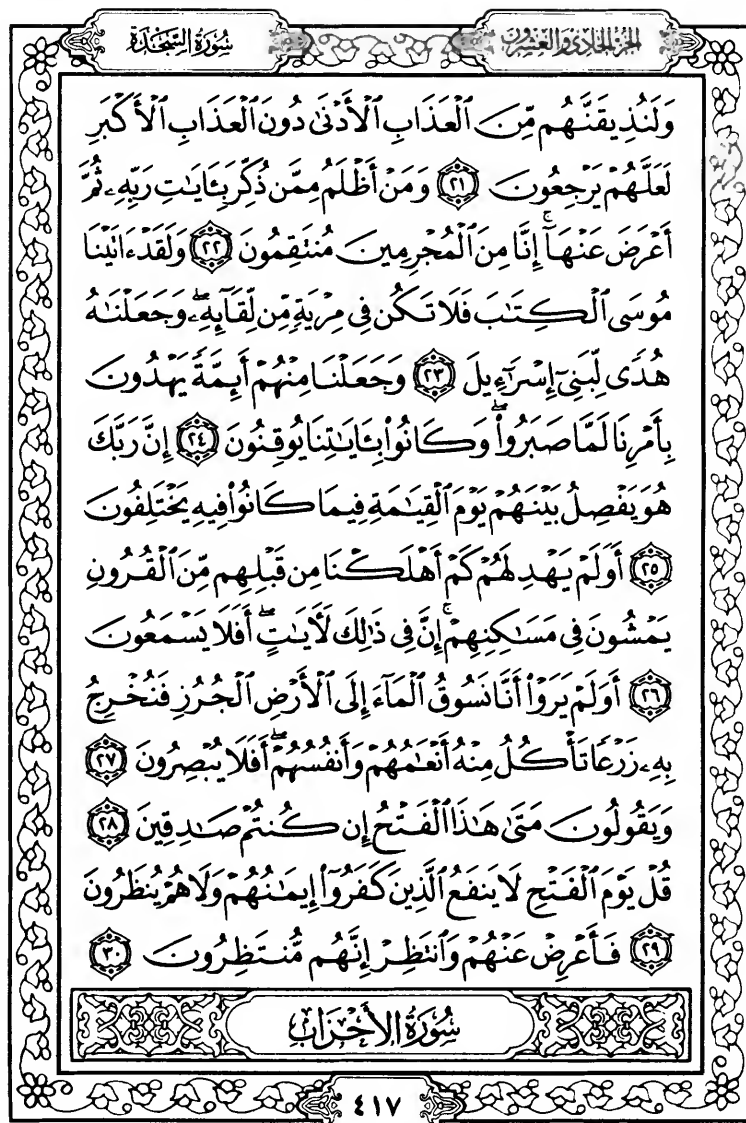 الجزء الحادي والعشرون
سُورَةُ السَّجْدَةِ
وَلَنُذِيقَنَّهُم مِّنَ ٱلْعَذَابِ ٱلْأَدْنَىٰ دُونَ ٱلْعَذَابِ ٱلْأَكْبَرِ
لَعَلَّهُمْ يَرْجِعُونَ ﴿٢١﴾ وَمَنْ أَظْلَمُ مِمَّن ذُكِّرَ بِـَٔايَـٰتِ رَبِّهِۦ ثُمَّ
أَعْرَضَ عَنْهَآ ۚ إِنَّا مِنَ ٱلْمُجْرِمِينَ مُنتَقِمُونَ ﴿٢٢﴾ وَلَقَدْ ءَاتَيْنَا
مُوسَى ٱلْكِتَـٰبَ فَلَا تَكُن فِى مِرْيَةٍ مِّن لِّقَآئِهِۦ ۖ وَجَعَلْنَـٰهُ
هُدًى لِّبَنِىٓ إِسْرَٰٓءِيلَ ﴿٢٣﴾ وَجَعَلْنَا مِنْهُمْ أَئِمَّةً يَهْدُونَ
بِأَمْرِنَا لَمَّا صَبَرُوا۟ ۖ وَكَانُوا۟ بِـَٔايَـٰتِنَا يُوقِنُونَ ﴿٢٤﴾ إِنَّ رَبَّكَ
هُوَ يَفْصِلُ بَيْنَهُمْ يَوْمَ ٱلْقِيَـٰمَةِ فِيمَا كَانُوا۟ فِيهِ يَخْتَلِفُونَ
﴿٢٥﴾ أَوَلَمْ يَهْدِ لَهُمْ كَمْ أَهْلَكْنَا مِن قَبْلِهِم مِّنَ ٱلْقُرُونِ
يَمْشُونَ فِى مَسَـٰكِنِهِمْ ۚ إِنَّ فِى ذَٰلِكَ لَـَٔايَـٰتٍ ۖ أَفَلَا يَسْمَعُونَ
﴿٢٦﴾ أَوَلَمْ يَرَوْا۟ أَنَّا نَسُوقُ ٱلْمَآءَ إِلَى ٱلْأَرْضِ ٱلْجُرُزِ فَنُخْرِجُ
بِهِۦ زَرْعًا تَأْكُلُ مِنْهُ أَنْعَـٰمُهُمْ وَأَنفُسُهُمْ ۖ أَفَلَا يُبْصِرُونَ ﴿٢٧﴾
وَيَقُولُونَ مَتَىٰ هَـٰذَا ٱلْفَتْحُ إِن كُنتُمْ صَـٰدِقِينَ ﴿٢٨﴾
قُلْ يَوْمَ ٱلْفَتْحِ لَا يَنفَعُ ٱلَّذِينَ كَفَرُوٓا۟ إِيمَـٰنُهُمْ وَلَا هُمْ يُنظَرُونَ
﴿٢٩﴾ فَأَعْرِضْ عَنْهُمْ وَٱنتَظِرْ إِنَّهُم مُّنتَظِرُونَ ﴿٣٠﴾
سُورَةُ الأَحْزَابِ
٤١٧